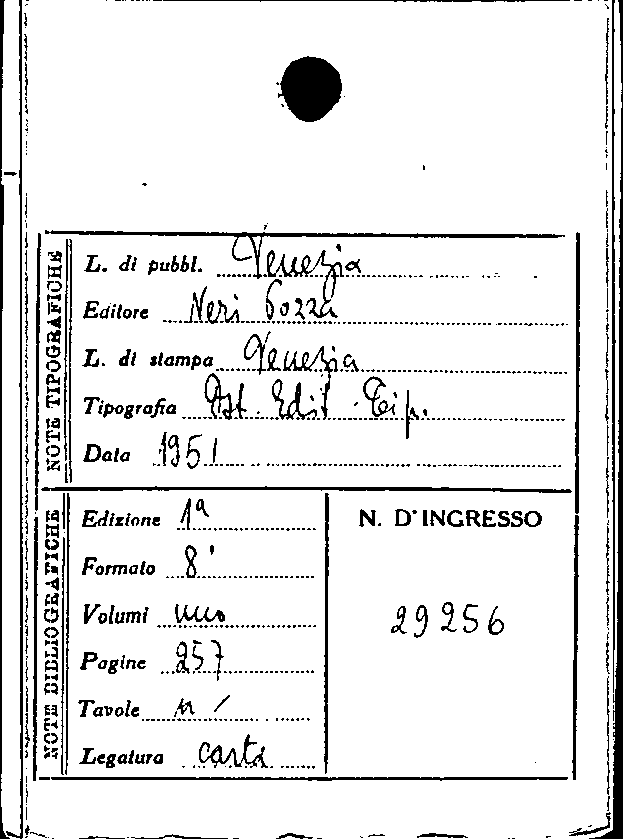 NOTE TIPOGRAFICHE
L. di pubbl. Venezia
Editore Neri Pozza
L. di stampa Venezia
Tipografia Ist. Edit. Tip.
Data 1951
NOTE BIBLIOGRAFICHE
Edizione 1ª
Formato 8°
Volumi uno
Pagine 257
Tavole n /
Legatura carta
N. D'INGRESSO
29256